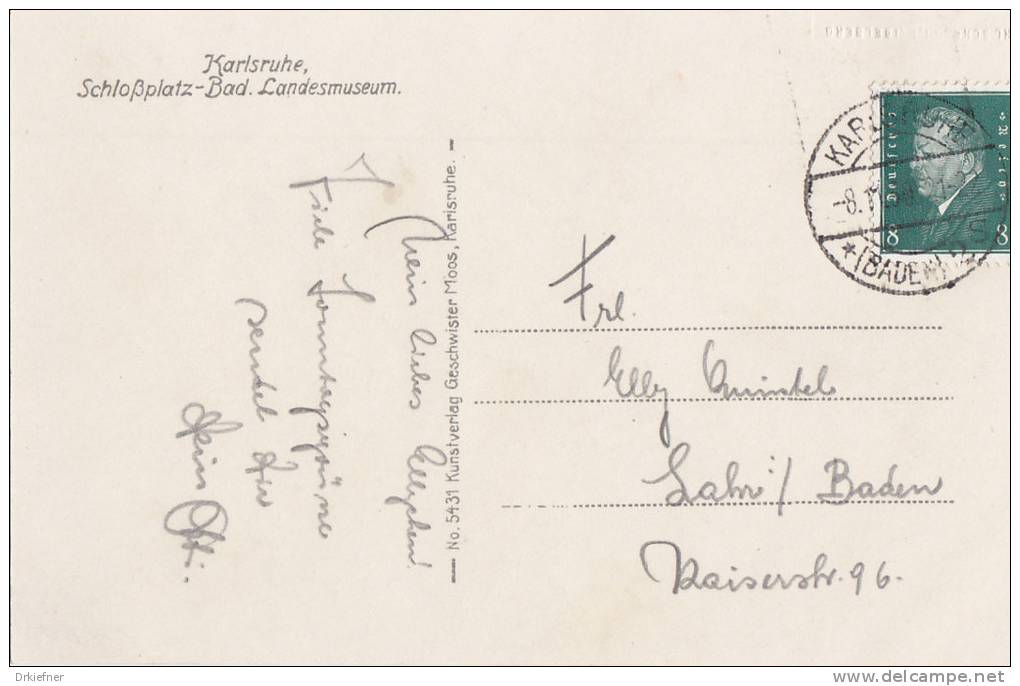 Karlsruhe,
Schloßplatz-Bad. Landesmuseum.
Mein liebes Ellychen!
Viele Sonntagsgrüsse
sendet Dir
Dein Otti.
No. 5431 Kunstverlag Geschwister Moos, Karlsruhe.
KARLSRUHE
(BADEN)
Deutsches Reich
8 8
Frl.
Elly Quintel
Lahr / Baden
Kaiserstr. 96.
Drkiefner
delcampe.net